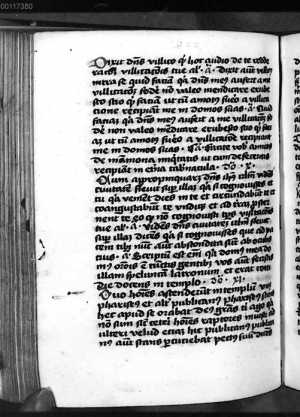 00117380
Dixit dns villico qd hoc audio de te redde
racionem villicationis tue al. a. Dixit autem villic9
intra se quid faciam qa dns meus aufert a me
villicationem fodere non valeo mendicare erube
sco scio quid faciam ut cum amotus fuero a villica
cione recipiant me in domos suas. a. Quid
faciam qa dns meus aufert a me villicacionem fo
dere non valeo mendicare erubesco scio quid faci
am ut cum amotus fuero a villicacione recipiant
me in domos suas. facite vobis amicos
de mamona iniquitatis ut cum defeceritis
recipiant in eterna tabernacula.
Cum appropinquaret dns ihrlm videns
civitatem flevit super illam qa si cognovisses et
tu qa venient dies in te et circumdabunt te et
coangustabunt te undique et ad terram proster
nent te eo qd non cognovisti tempus visitacionis
tue al. a. Videns dns civitatem ihrlm flevit
super illam dicens qa si cognovisses que ad pa
cem tibi nunc autem abscondita sunt ab oculis
tuis. a. Scriptum est enim qa domus mea do
mus oracionis est cunctis gentibus vos autem fecistis
illam speluncam latronum et erat coti
die docens in templo.
Duo homines ascenderunt in templum unus
phariseus et alter publicanus phariseus stans
hec apud se orabat deus gras ti ago qa
non sum sicut ceteri homines raptores iniusti ad
ulteri velud etiam hic publicanus publican
us autem stans percuciebat pectus suum dicens